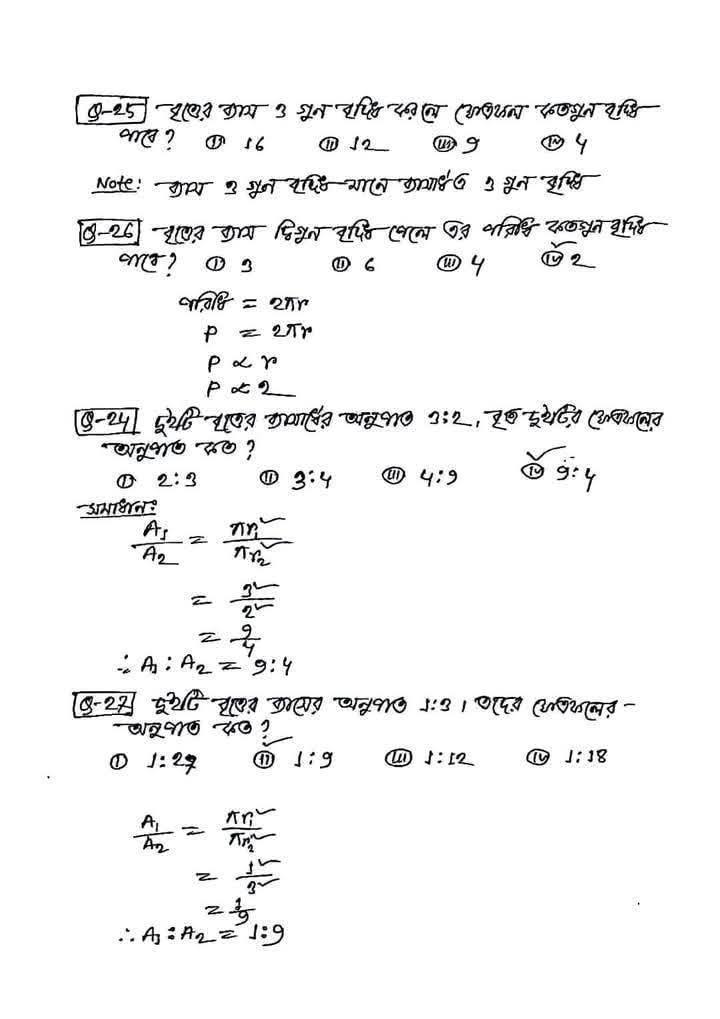 Q-25 বৃত্তের ব্যাস ৩ গুন বৃদ্ধি করলে ক্ষেত্রফল কতগুন বৃদ্ধি
পাবে? (i) 16 (ii) 12 (iii) 9 (iv) 4
Note: ব্যাস ৩ গুন বৃদ্ধি মানে ব্যাসার্ধও ৩ গুন বৃদ্ধি
Q-26 বৃত্তের ব্যাস দ্বিগুন বৃদ্ধি পেলে এর পরিধি কতগুন বৃদ্ধি
পাবে? (i) 3 (ii) 6 (iii) 4 (iv) 2
পরিধি = 2πr
P = 2πr
P ∝ r
P ∝ 2
Q-24 দুইটি বৃত্তের ব্যাসার্ধের অনুপাত 3:2, বৃত্ত দুইটির ক্ষেত্রফলের
অনুপাত কত?
(i) 2:3 (ii) 3:4 (iii) 4:9 (iv) 9:4
সমাধান:
A₁/A₂ = πr₁²/πr₂²
= 3²/2²
= 9/4
∴ A₁ : A₂ = 9:4
Q-27 দুইটি বৃত্তের ব্যাসের অনুপাত 1:3। তদের ক্ষেত্রফলের
অনুপাত কত?
(i) 1:27 (ii) 1:9 (iii) 1:12 (iv) 1:18
A₁/A₂ = πr₁²/πr₂²
= 1²/3²
= 1/9
∴ A₁ : A₂ = 1:9